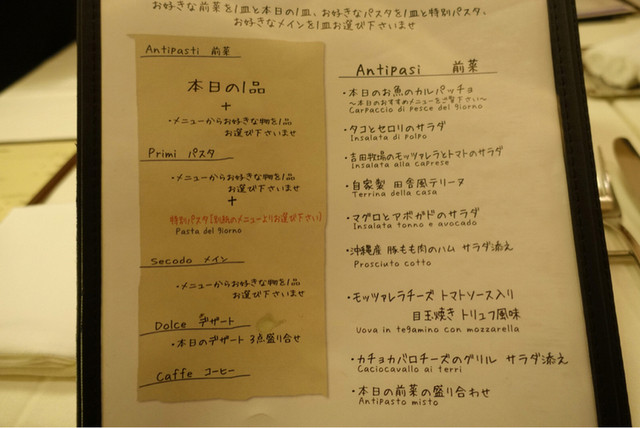 お好きな前菜を1皿と本日の1皿、お好きなパスタを1皿と特別パスタ、
お好きなメインを1皿お選び下さいませ
Antipasti 前菜
本日の1品
+
・メニューからお好きな物を1品
お選び下さいませ
Primi パスタ
・メニューからお好きな物を1品
お選び下さいませ
+
特別パスタ【別紙のメニューよりお選び下さい】
Pasta del giorno
Secodo メイン
・メニューからお好きな物を1品
お選び下さいませ
Dolce デザート
・本日のデザート 3点盛り合せ
Caffe コーヒー
Antipasi 前菜
・本日のお魚のカルパッチョ
～本日のおすすめメニューをご覧下さい～
Carpaccio di pesce del giorno
・タコとセロリのサラダ
Insalata di polpo
・吉田牧場のモッツァレラとトマトのサラダ
Insalata alla caprese
・自家製 田舎風テリーヌ
Terrina della casa
・マグロとアボガドのサラダ
Insalata tonno e avocado
・沖縄産 豚もも肉のハム サラダ添え
Prosciuto cotto
・モッツァレラチーズ トマトソース入り
目玉焼き トリュフ風味
Uova in tegamino con mozzarella
・カチョカバロチーズのグリル サラダ添え
Caciocavallo ai ferri
・本日の前菜の盛り合わせ
Antipasto misto